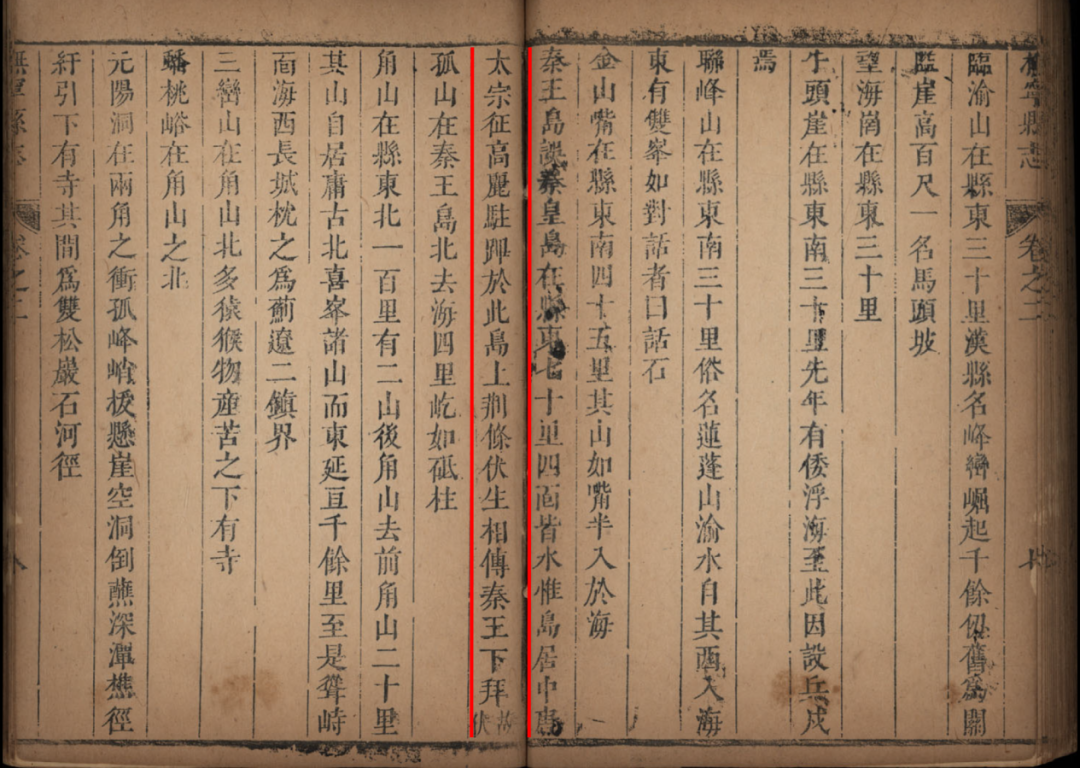 撫寧縣志
卷之二
臨渝山在縣東三十里漢縣名峰巒崛起千餘仞舊為關
監崖高百尺一名馬頭坡
望海崗在縣東三十里
牛頭崖在縣東南三十里先年有倭浮海至此因設兵戍
焉
聯峰山在縣東南三十里俗名蓮蓬山渝水自其西入海
東有雙峯如對話者曰話石
金山嘴在縣東南四十五里其山如嘴半入於海
秦王島誤秦皇島在縣東七十里四面皆水惟島居中唐
太宗征高麗駐蹕於此島上荆條伏生相傳秦王下拜故伏
孤山在秦王島北去海四里屹如砥柱
角山在縣東北一百里有二山後角山去前角山二十里
其山自居庸古北喜峯諸山而東延亘千餘里至是聳峙
面海西長城枕之爲薊遼二鎮界
三巒山在角山北多猿猴物產苦之下有寺
蟠桃峪在角山之北
元陽洞在兩角之衝孤峰峭拔懸崖空洞倒蘸深潭樵徑
紆引下有寺其間爲雙松巖石河徑
撫寧縣志
卷之二